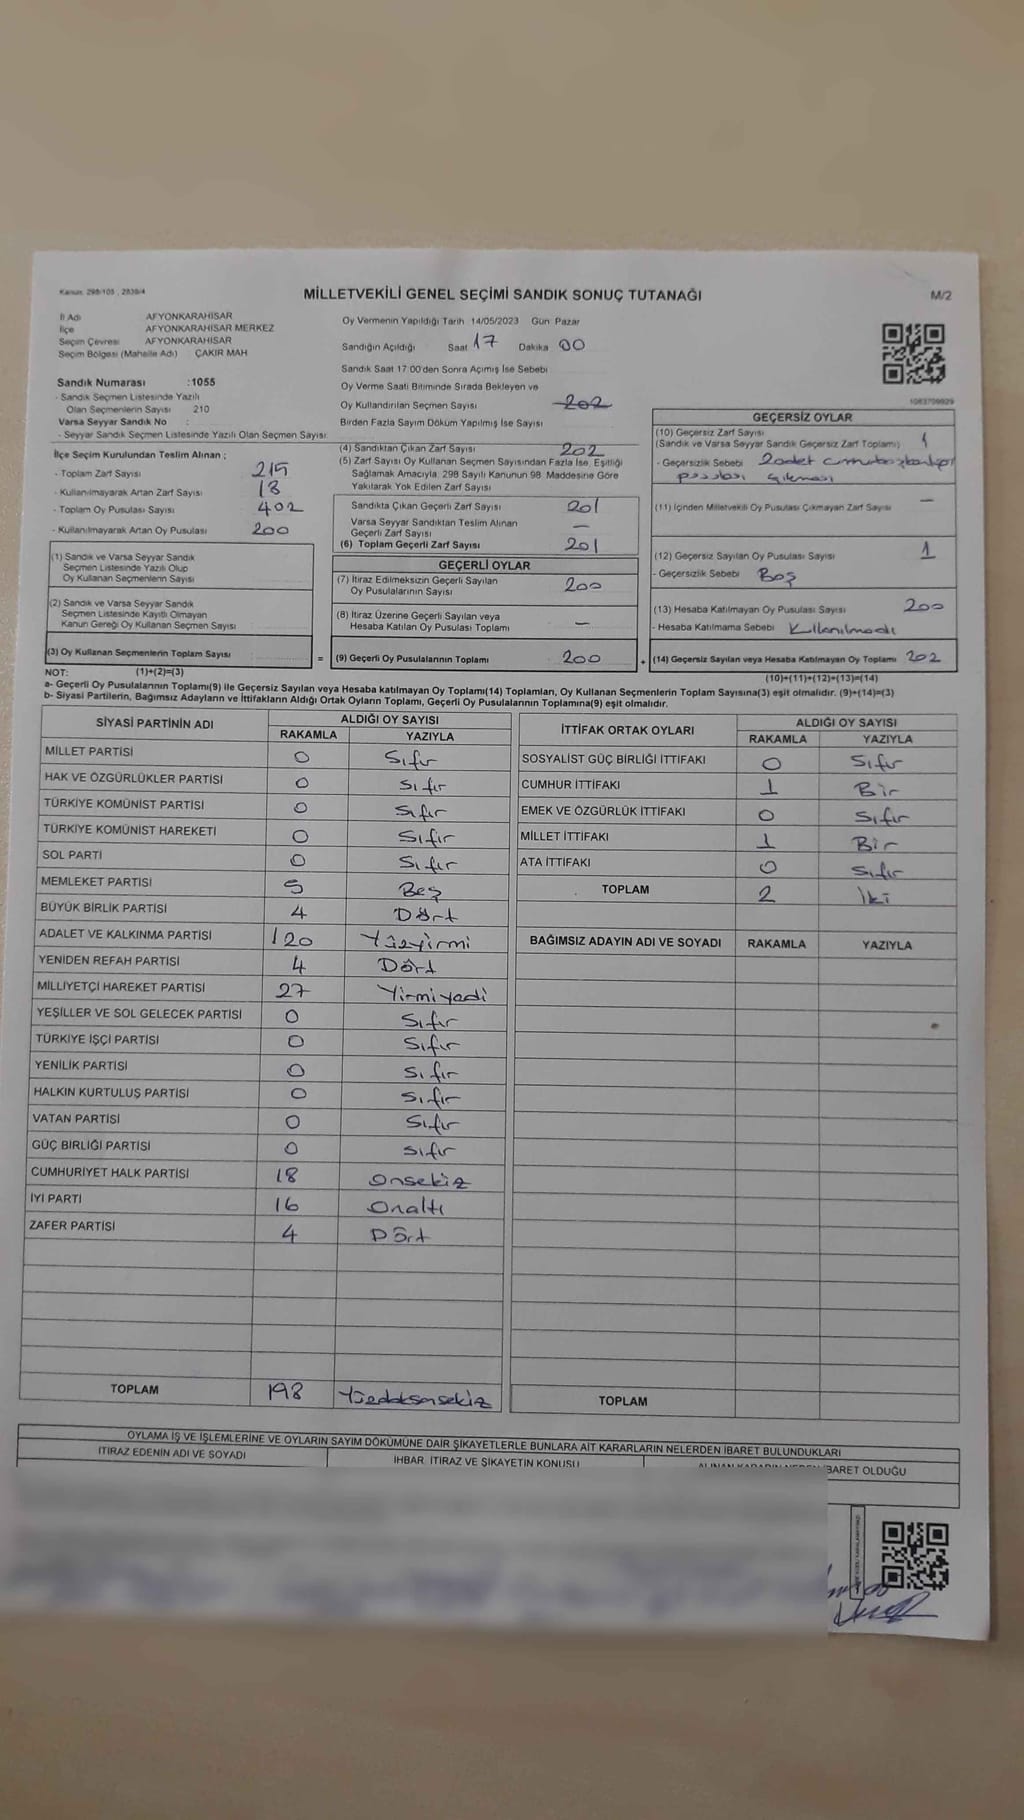 Kanun: 298/105 , 2839/4
MİLLETVEKİLİ GENEL SEÇİMİ SANDIK SONUÇ TUTANAĞI
M/2
İl Adı AFYONKARAHİSAR
İlçe AFYONKARAHİSAR MERKEZ
Seçim Çevresi AFYONKARAHİSAR
Seçim Bölgesi (Mahalle Adı) ÇAKIR MAH
Sandık Numarası :1055
- Sandık Seçmen Listesinde Yazılı
Olan Seçmenlerin Sayısı 210
Varsa Seyyar Sandık No :
- Seyyar Sandık Seçmen Listesinde Yazılı Olan Seçmen Sayısı:
İlçe Seçim Kurulundan Teslim Alınan ;
- Toplam Zarf Sayısı 215
- Kullanılmayarak Artan Zarf Sayısı 13
- Toplam Oy Pusulası Sayısı 402
- Kullanılmayarak Artan Oy Pusulası 200
(1) Sandık ve Varsa Seyyar Sandık
Seçmen Listesinde Yazılı Olup
Oy Kullanan Seçmenlerin Sayısı
(2) Sandık ve Varsa Seyyar Sandık
Seçmen Listesinde Kayıtlı Olmayan
Kanun Gereği Oy Kullanan Seçmen Sayısı
(3) Oy Kullanan Seçmenlerin Toplam Sayısı
(1)+(2)=(3)
Oy Vermenin Yapıldığı Tarih 14/05/2023 Gün Pazar
Sandığın Açıldığı Saat 17 Dakika 00
Sandık Saat 17:00'den Sonra Açımış İse Sebebi
Oy Verme Saati Bitiminde Sırada Bekleyen ve
Oy Kullandırılan Seçmen Sayısı 202
Birden Fazla Sayım Döküm Yapılmış İse Sayısı
(4) Sandıktan Çıkan Zarf Sayısı 202
(5) Zarf Sayısı Oy Kullanan Seçmen Sayısından Fazla İse, Eşitliği
Sağlamak Amacıyla, 298 Sayılı Kanunun 98. Maddesine Göre
Yakılarak Yok Edilen Zarf Sayısı
Sandıkta Çıkan Geçerli Zarf Sayısı 201
Varsa Seyyar Sandıktan Teslim Alınan
Geçerli Zarf Sayısı —
(6) Toplam Geçerli Zarf Sayısı 201
GEÇERLİ OYLAR
(7) İtiraz Edilmeksizin Geçerli Sayılan
Oy Pusulalarının Sayısı 200
(8) İtiraz Üzerine Geçerli Sayılan veya
Hesaba Katılan Oy Pusulası Toplamı —
= (9) Geçerli Oy Pusulalarının Toplamı 200
1063709929
GEÇERSİZ OYLAR
(10) Geçersiz Zarf Sayısı
(Sandık ve Varsa Seyyar Sandık Geçersiz Zarf Toplamı) 1
- Geçersizlik Sebebi 2 adet cumhurbaşkanlığı
pusulası çıkması
(11) İçinden Milletvekili Oy Pusulası Çıkmayan Zarf Sayısı —
(12) Geçersiz Sayılan Oy Pusulası Sayısı 1
- Geçersizlik Sebebi Boş
(13) Hesaba Katılmayan Oy Pusulası Sayısı 200
- Hesaba Katılmama Sebebi Kullanılmadı
+ (14) Geçersiz Sayılan veya Hesaba Katılmayan Oy Toplamı 202
(10)+(11)+(12)+(13)=(14)
NOT:
a- Geçerli Oy Pusulalarının Toplamı(9) ile Geçersiz Sayılan veya Hesaba katılmayan Oy Toplamı(14) Toplamları, Oy Kullanan Seçmenlerin Toplam Sayısına(3) eşit olmalıdır. (9)+(14)=(3)
b- Siyasi Partilerin, Bağımsız Adayların ve İttifakların Aldığı Ortak Oyların Toplamı, Geçerli Oy Pusulalarının Toplamına(9) eşit olmalıdır.
SİYASİ PARTİNİN ADI ALDIĞI OY SAYISI
RAKAMLA YAZIYLA
MİLLET PARTİSİ 0 Sıfır
HAK VE ÖZGÜRLÜKLER PARTİSİ 0 Sıfır
TÜRKİYE KOMÜNİST PARTİSİ 0 Sıfır
TÜRKİYE KOMÜNİST HAREKETİ 0 Sıfır
SOL PARTİ 0 Sıfır
MEMLEKET PARTİSİ 5 Beş
BÜYÜK BİRLİK PARTİSİ 4 Dört
ADALET VE KALKINMA PARTİSİ 120 Yüzyirmi
YENİDEN REFAH PARTİSİ 4 Dört
MİLLİYETÇİ HAREKET PARTİSİ 27 Yirmiyedi
YEŞİLLER VE SOL GELECEK PARTİSİ 0 Sıfır
TÜRKİYE İŞÇİ PARTİSİ 0 Sıfır
YENİLİK PARTİSİ 0 Sıfır
HALKIN KURTULUŞ PARTİSİ 0 Sıfır
VATAN PARTİSİ 0 Sıfır
GÜÇ BİRLİĞİ PARTİSİ 0 Sıfır
CUMHURİYET HALK PARTİSİ 18 Onsekiz
İYİ PARTİ 16 Onaltı
ZAFER PARTİSİ 4 Dört
TOPLAM 198 Yüzdoksansekiz
İTTİFAK ORTAK OYLARI ALDIĞI OY SAYISI
RAKAMLA YAZIYLA
SOSYALİST GÜÇ BİRLİĞİ İTTİFAKI 0 Sıfır
CUMHUR İTTİFAKI 1 Bir
EMEK VE ÖZGÜRLÜK İTTİFAKI 0 Sıfır
MİLLET İTTİFAKI 1 Bir
ATA İTTİFAKI 0 Sıfır
TOPLAM 2 İki
BAĞIMSIZ ADAYIN ADI VE SOYADI RAKAMLA YAZIYLA
TOPLAM
OYLAMA İŞ VE İŞLEMLERİNE VE OYLARIN SAYIM DÖKÜMÜNE DAİR ŞİKAYETLERLE BUNLARA AİT KARARLARIN NELERDEN İBARET BULUNDUKLARI
İTİRAZ EDENİN ADI VE SOYADI İHBAR, İTİRAZ VE ŞİKAYETİN KONUSU ALINAN KARARIN NEDEN İBARET OLDUĞU